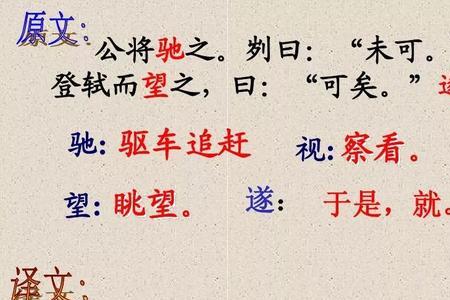 原文：
公将驰之。刿曰：“未可。
登轼而望之，曰：“可矣。”遂
驰：驱车追赶 视：察看。
望：眺望。 遂：于是，就。
译文：